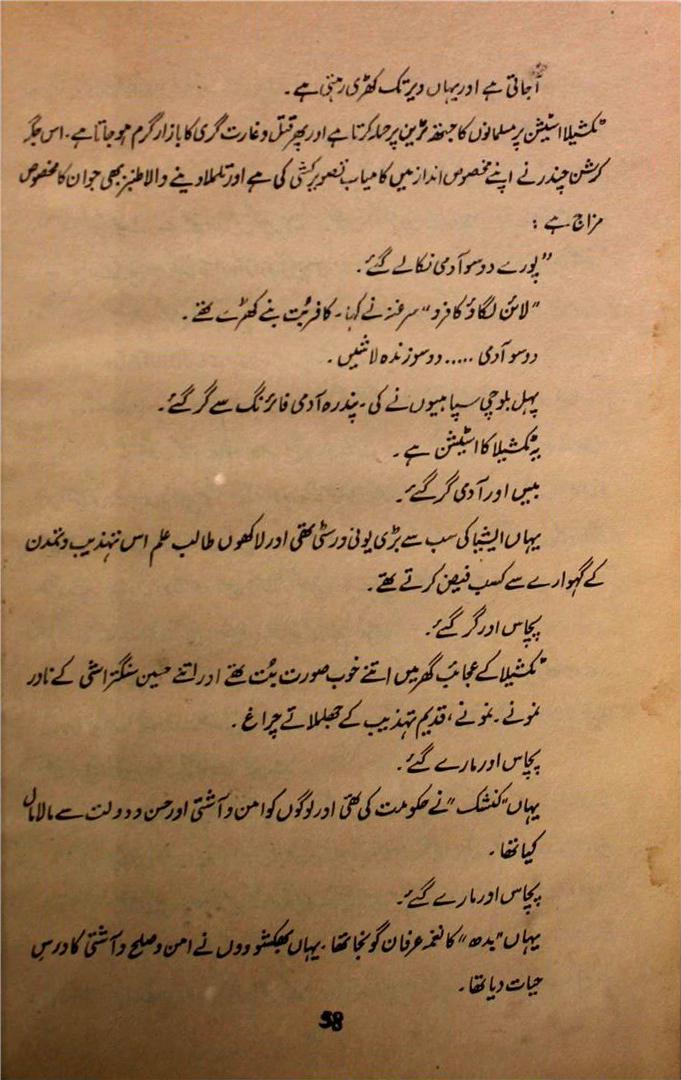 آجاتی ہے اور یہاں دیر تک کھڑی رہتی ہے۔
ٹکشیلا اسٹیشن پر مسلمانوں کا جتھہ ٹرین پر حملہ کرتا ہے اور پھر قتل و غارت گری کا بازار گرم ہو جاتا ہے۔ اس جگہ
کرشن چندر نے اپنے مخصوص انداز میں کامیاب تصویر کشی کی ہے اور تلملا دینے والا طنز بھی جو ان کا مخصوص
مزاج ہے :
"پورے دو سو آدمی نکالے گئے۔
"لائن لگاؤ کافرو" سرغنہ نے کہا۔ کافر بُت بنے کھڑے تھے۔
دو سو آدمی ..... دو سو زندہ لاشیں۔
پہل بلوچی سپاہیوں نے کی۔ پندرہ آدمی فائرنگ سے گر گئے۔
یہ ٹکشیلا کا اسٹیشن ہے۔
بیس اور آدمی گر گئے۔
یہاں ایشیا کی سب سے بڑی یونی ورسٹی تھی اور لاکھوں طالب علم اس تہذیب و تمدن
کے گہوارے سے کسب فیض کرتے تھے۔
پچاس اور گر گئے۔
ٹکشیلا کے عجائب گھر میں اتنے خوب صورت بُت تھے اور اتنے حسین سنگتراشی کے نادر
نمونے۔ نمونے، قدیم تہذیب کے جھلملاتے چراغ۔
پچاس اور مارے گئے۔
یہاں "کنشک" نے حکومت کی تھی اور لوگوں کو امن و آشتی اور حسن و دولت سے مالا مال
کیا تھا۔
پچاس اور مارے گئے۔
یہاں "بدھ" کا نغمہ عرفان گونجا تھا۔ یہاں بھکشوووں نے امن و صلح و آشتی کا درسِ
حیات دیا تھا۔
58